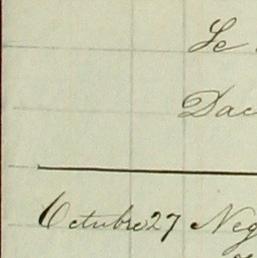 Le
Dac
Octubre 27 Neg